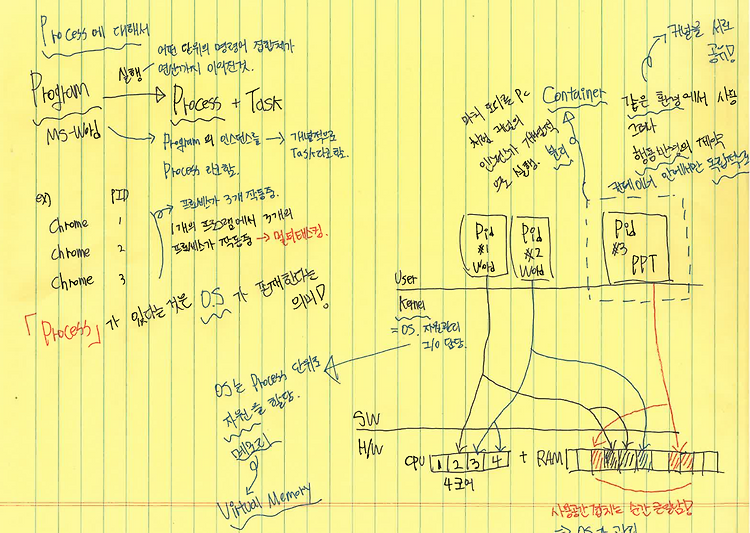 Process에 대해서
어떤 단위의 명령어 집합체가
연산까지 이어진것.
실행
Program
Process + Task
MS-Word
Program의 인스턴스를
Process 라고함.
개념적으로
Task라고함.
ex)
PID
Chrome 1
Chrome 2
Chrome 3
프로세스가 3개 작동중.
1개의 프로그램에서 3개의
프로세스가 작동중 → 멀티태스킹.
「Process」가 있다는 것은 O.S 가 존재한다는
의미!
커널을 서로
공유!
Container
같은 환경에서 사용
그러나
행동반경의 제약
컨테이너 안에서만 독립적으로
마치
PC
처럼
인스턴스가 개별적
으로 실행.
분리
Pid
#1
Word
Pid
#2
Word
Pid
#3
PPT
User
Kernel
= OS. 자원관리
I/O 담당.
OS는 Process 단위로
자원을 할당.
메모리
Virtual Memory
SW
H/W
CPU 1 2 3 4 + RAM
4코어
사용공간 겹치는 순간 큰일남!